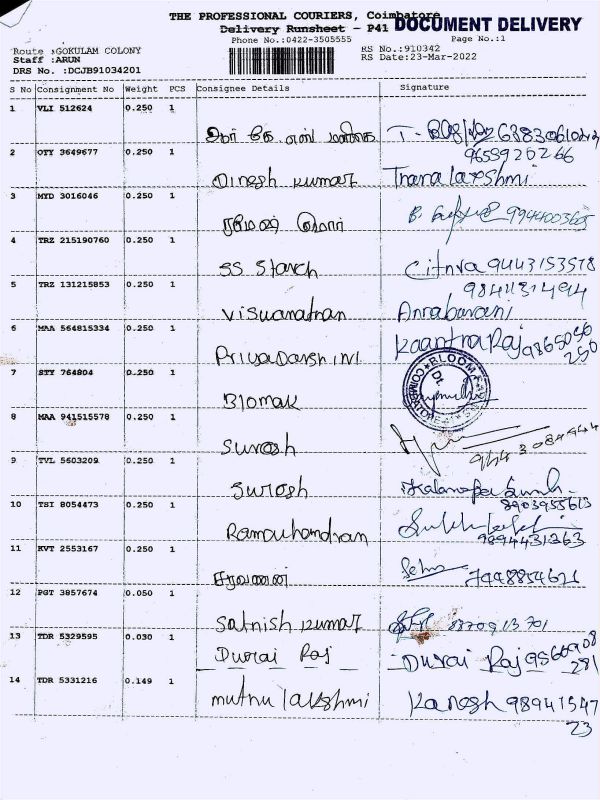 THE PROFESSIONAL COURIERS, Coimbatore
DOCUMENT DELIVERY
Delivery Runsheet - P41
Phone No.:0422-3505555
Page No.:1
Route :GOKULAM COLONY
RS No.:910342
Staff :ARUN
RS Date:23-Mar-2022
DRS No. :DCJB91034201
S No Consignment No Weight PCS Consignee Details Signature
1 VLI 512624 0.250 1
6383061022
2 OTY 3649677 0.250 1
9659920266
Dinesh kumar Thanalakshmi
3 MYD 3016046 0.250 1
ரமேஷ்
4 TRZ 215190760 0.250 1
SS Starch Cithra 9443153578
5 TRZ 131215853 0.250 1
9844314944
Viswanathan
6 MAA 564815334 0.250 1
Priyadarshini 9865050
250
7 STY 764804 0.250 1
COIMBATORE
Biomak
8 MAA 941515578 0.250 1
Suresh
9 TVL 5603209 0.250 1
Suresh
8903955613
10 TSI 8054473 0.250 1
Ramachandran 9894431363
11 KVT 2553167 0.250 1
சரவணன்
12 PGT 3857674 0.050 1
Sathish kumar
13 TDR 5329595 0.030 1
Durai Raj Durai Raj 9566908
281
14 TDR 5331216 0.149 1
muthu lakshmi Kanesh 98941547
23